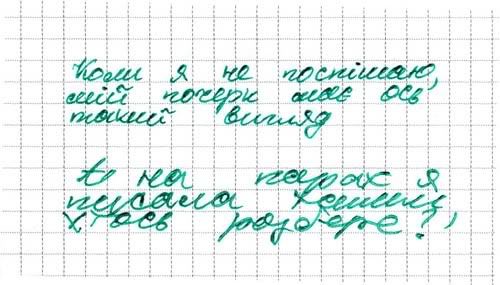 Коли я не поспішаю,
мій почерк має ось
такий вигляд
А на парах я
писала
Хтось розбере?)